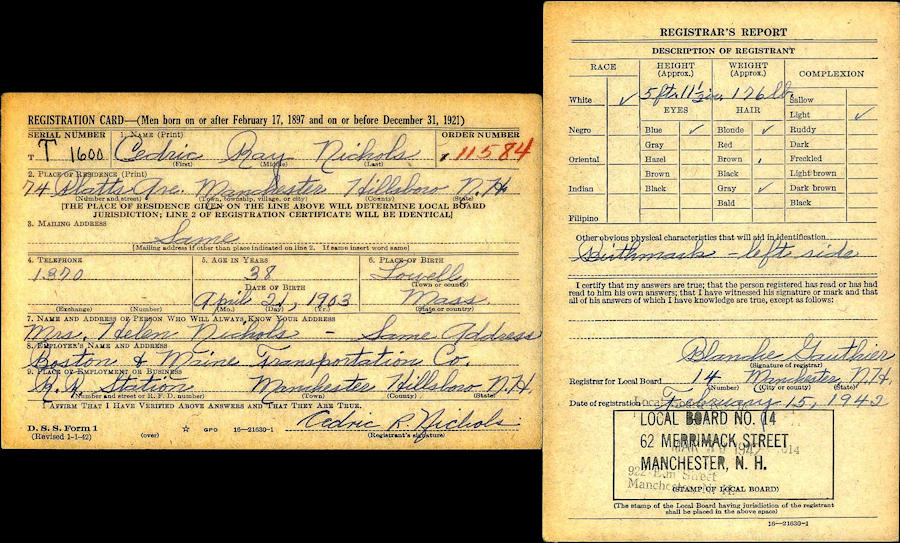 REGISTRATION CARD—(Men born on or after February 17, 1897 and on or before December 31, 1921)
SERIAL NUMBER 1. NAME (Print) ORDER NUMBER
T T 1600 Cedric Ray Nichols 11584
(First) (Middle) (Last)
2. PLACE OF RESIDENCE (Print)
74 Platts Ave. Manchester Hillsboro N.H.
(Number and street) (Town, township, village, or city) (County) (State)
[THE PLACE OF RESIDENCE GIVEN ON THE LINE ABOVE WILL DETERMINE LOCAL BOARD
JURISDICTION; LINE 2 OF REGISTRATION CERTIFICATE WILL BE IDENTICAL]
3. MAILING ADDRESS
Same
[Mailing address if other than place indicated on line 2. If same insert word same]
4. TELEPHONE 5. AGE IN YEARS 6. PLACE OF BIRTH
1370 38 Lowell,
(Town or county)
DATE OF BIRTH
April 21, 1903 Mass.
(Exchange) (Number) (Mo.) (Day) (Yr.) (State or country)
7. NAME AND ADDRESS OF PERSON WHO WILL ALWAYS KNOW YOUR ADDRESS
Mrs. Helen Nichols — Same Address
8. EMPLOYER'S NAME AND ADDRESS
Boston & Maine Transportation Co.
9. PLACE OF EMPLOYMENT OR BUSINESS
R.R. Station Manchester Hillsboro N.H.
(Number and street or R. F. D. number) (Town) (County) (State)
I AFFIRM THAT I HAVE VERIFIED ABOVE ANSWERS AND THAT THEY ARE TRUE.
Cedric R. Nichols
D. S. S. Form 1
(Revised 1-1-42) (over) ☆ GPO 16—21630-1 (Registrant's signature)
REGISTRAR'S REPORT
DESCRIPTION OF REGISTRANT
RACE HEIGHT (Approx.) WEIGHT (Approx.) COMPLEXION
5 ft. 11 1/2 in. 176 lb.
White ✓ EYES HAIR Sallow
Light ✓
Negro Blue ✓ Blonde ✓ Ruddy
Gray Red Dark
Oriental Hazel Brown Freckled
Brown Black Light brown
Indian Black Gray ✓ Dark brown
Bald Black
Filipino
Other obvious physical characteristics that will aid in identification
Birthmark - left side
I certify that my answers are true; that the person registered has read or has had
read to him his own answers; that I have witnessed his signature or mark and that
all of his answers of which I have knowledge are true, except as follows:
Blanche Gauthier
(Signature of registrar)
Registrar for Local Board 14 Manchester N.H.
(Number) (City or county) (State)
Date of registration February 15, 1942
LOCAL BOARD NO. 14
62 MERRIMACK STREET
MANCHESTER, N. H.
(STAMP OF LOCAL BOARD)
(The stamp of the Local Board having jurisdiction of the registrant
shall be placed in the above space)
16—21630-1